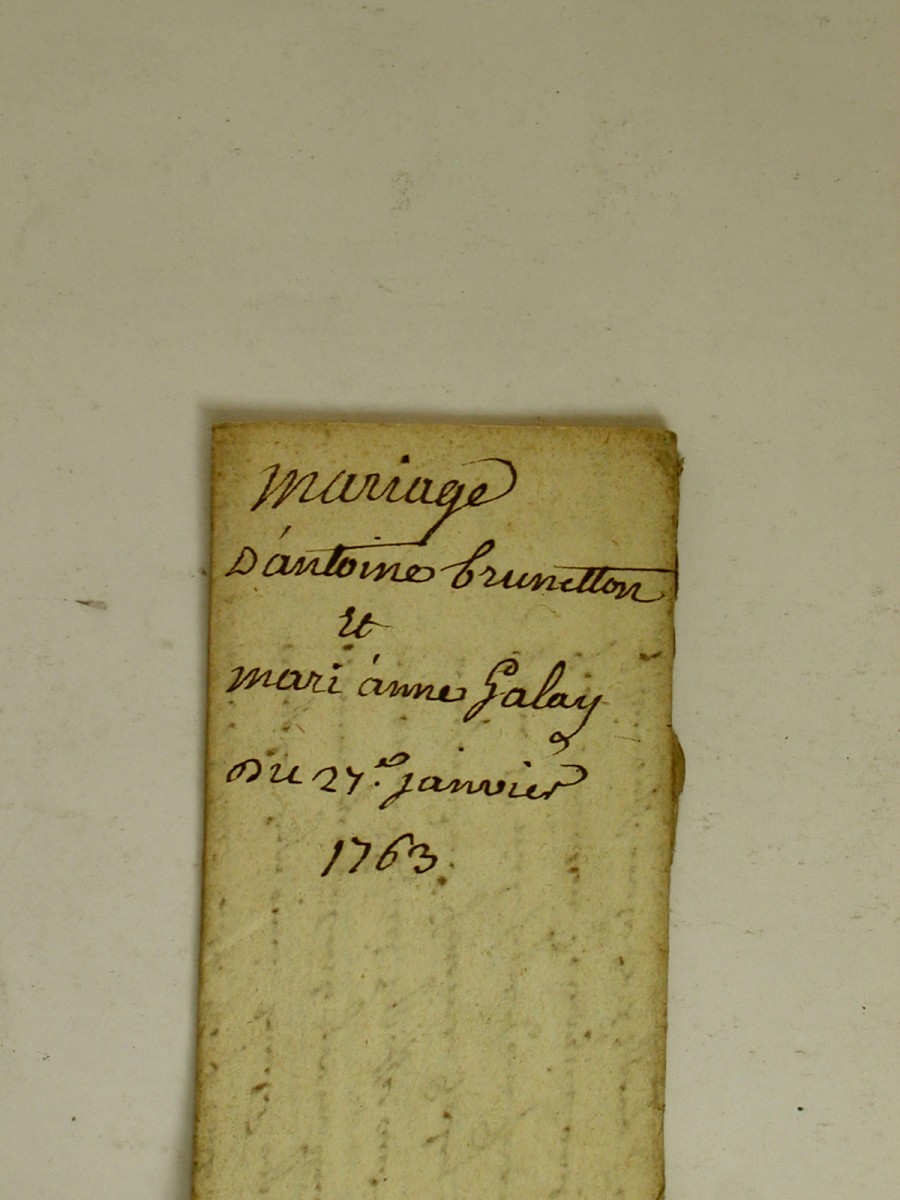 mariage
D'antoine brunetton
Et
mari anne Galay
Du 27e janvier
1763